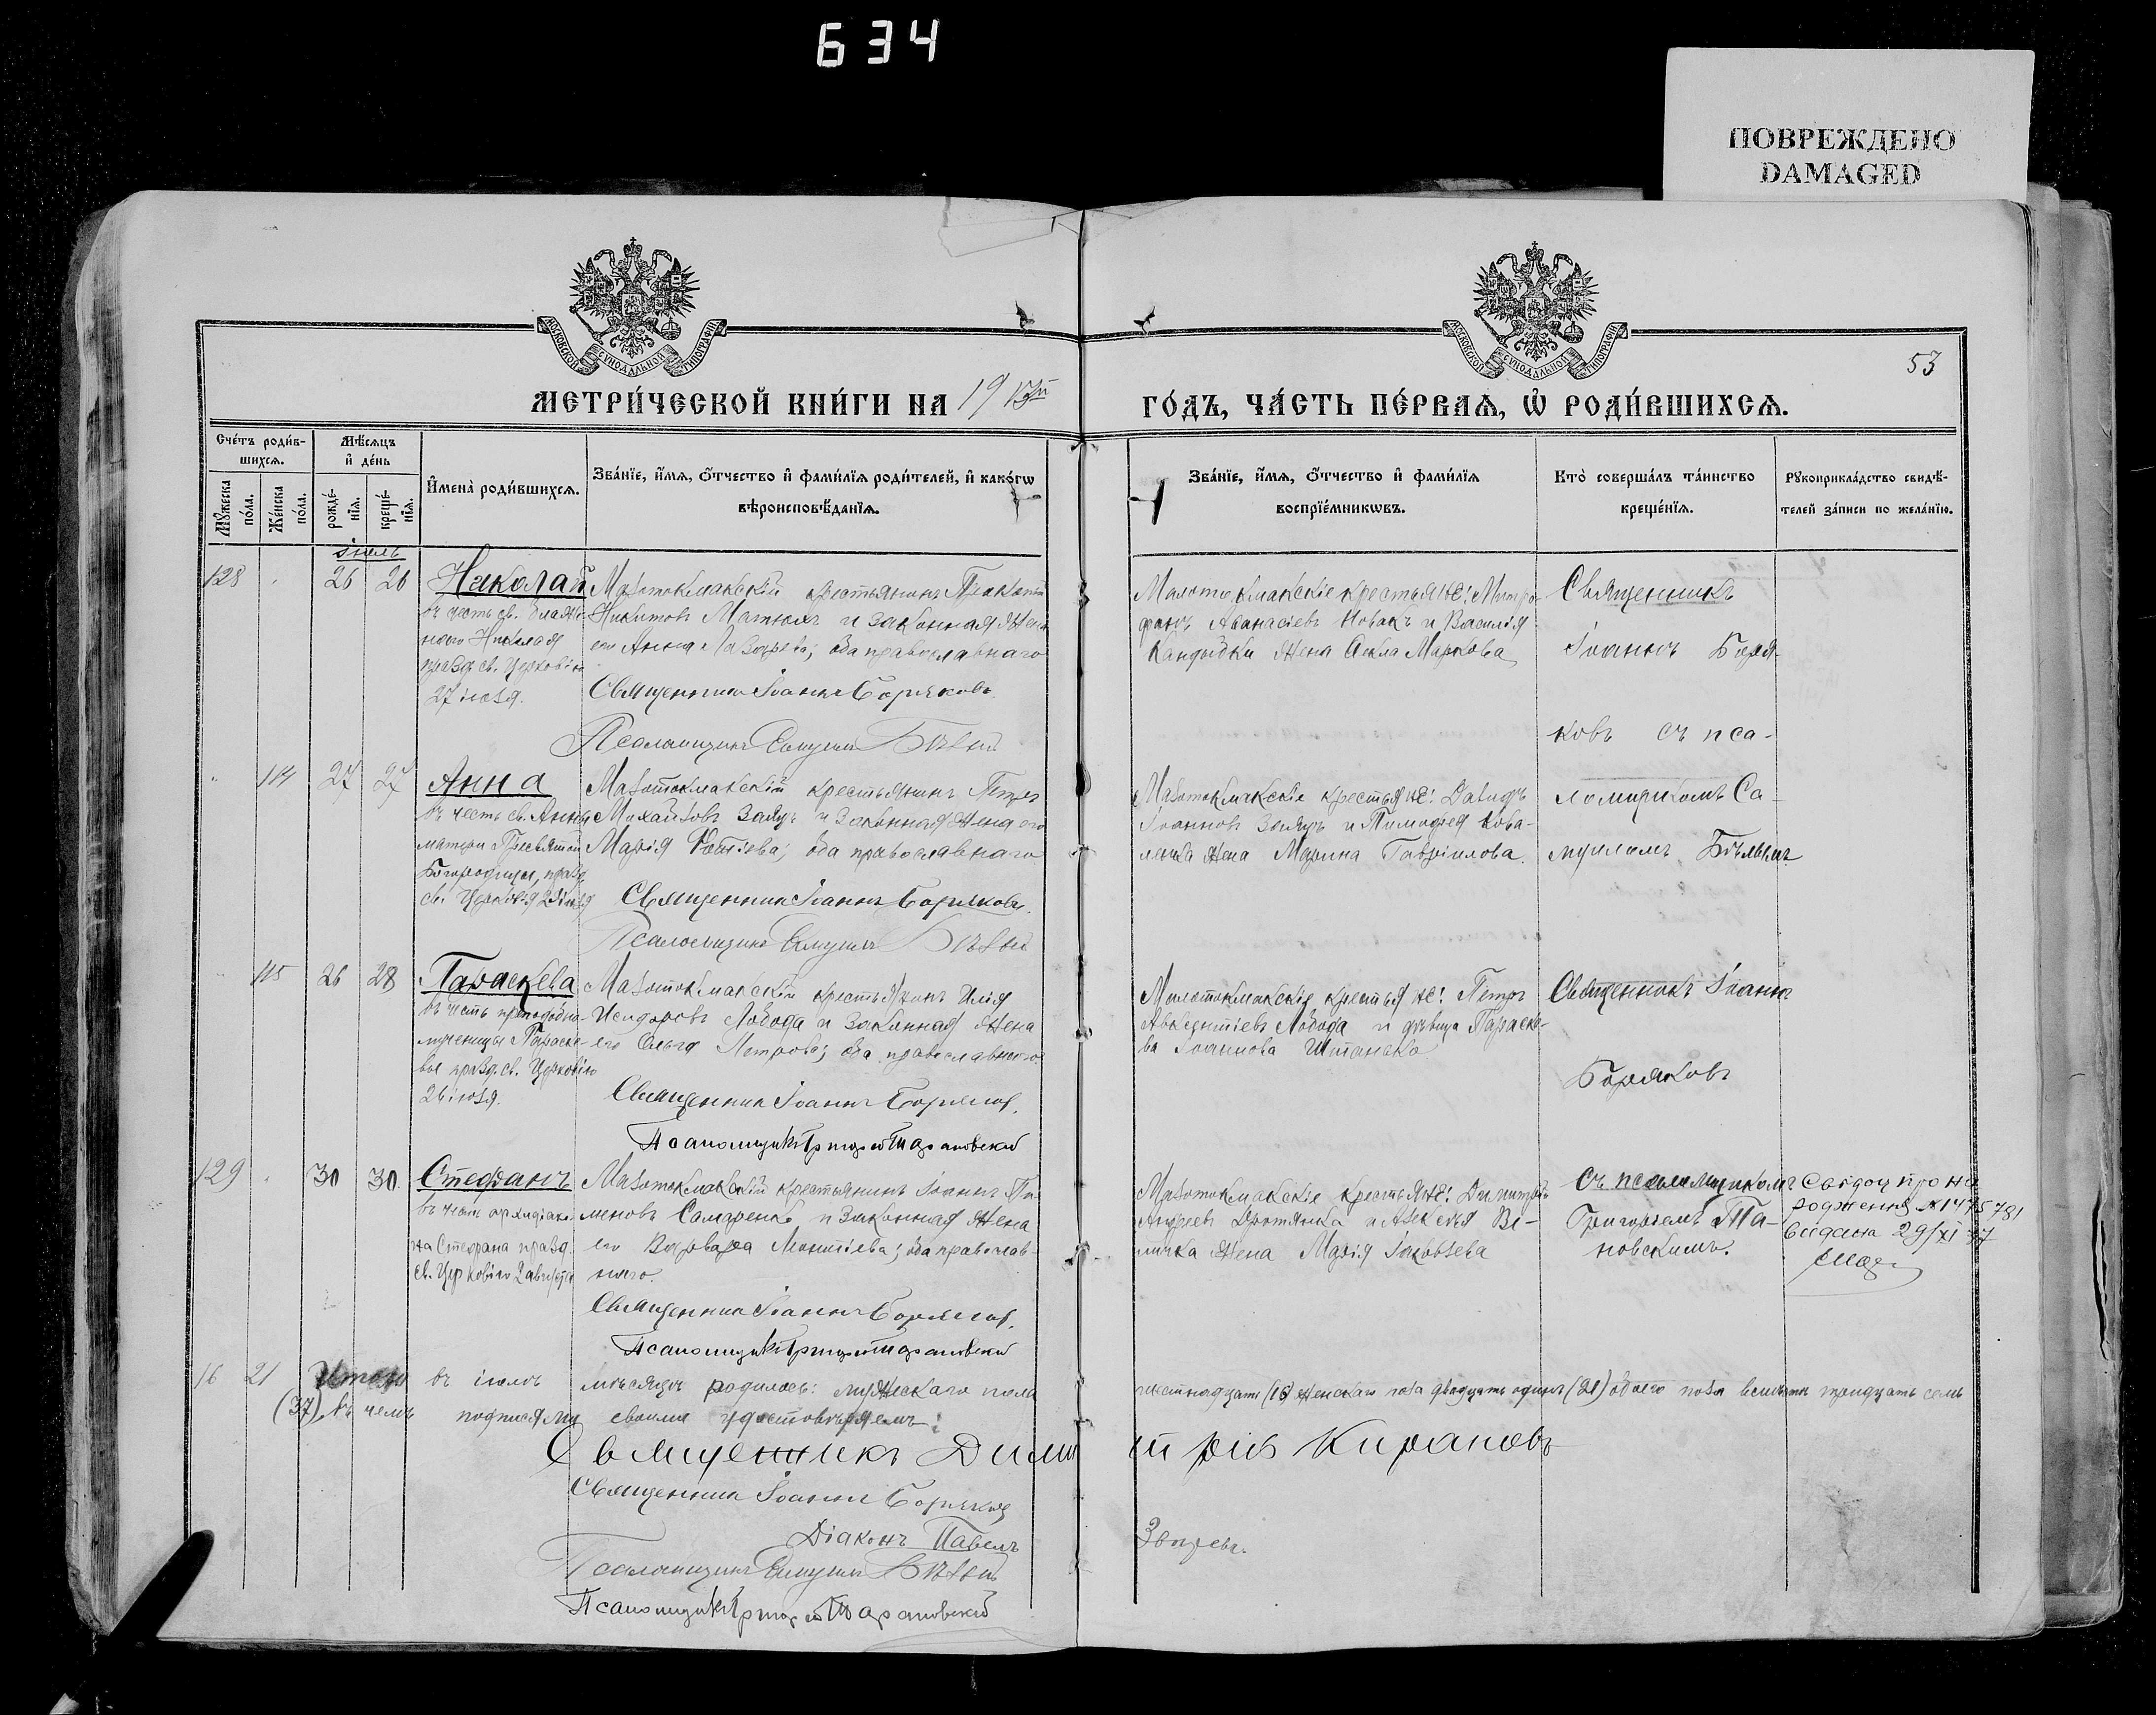 634
ПОВРЕЖДЕНО
DAMAGED
МОСКОВСКОЙ СѴНОДАЛЬНОЙ ТИПОГРАФІИ
МОСКОВСКОЙ СѴНОДАЛЬНОЙ ТИПОГРАФІИ
53
МЕТРИ́ЧЕСКОЙ КНИ́ГИ НА 19
ГО́ДЪ, ЧА́СТЬ ПЕ́РВАѦ, Ѡ҆ РОДИ́ВШИХСѦ.
Сче́тъ роди́в-
шихсѧ.
Мѣ́сѧцъ
и҆ де́нь
Мꙋ́жеска
по́ла.
Же́нска
по́ла.
рожде́-
нїѧ.
креще́-
нїѧ.
И҆мена̀ роди́вшихсѧ.
Зва́нїе, и҆́мѧ, ѻ҆́тчество и҆ фами́лїѧ роди́телей, и҆ како́гѡ
вѣроисповѣ́данїѧ.
Зва́нїе, и҆́мѧ, ѻ҆́тчество и҆ фами́лїѧ
воспрїе́мникѡвъ.
Кто̀ соверша́лъ та́инство
креще́нїѧ.
Рꙋкоприкла́дство свидѣ́-
телей за́писи по жела́нїю.
іюль
128 26 26 Николай
въ честь св. блажен-
наго Николая
празд. св. Церковію
27 іюля.
Малотокмакскій крестьянинъ
Никитовъ и законная жена
его Анна Лазарева; оба православнаго
Священникъ Іоаннъ Боряковъ.
Псаломщикъ Самуилъ Бѣлый
Малотокмакскіе крестьяне: Митро-
фанъ Аѳанасіевъ Новакъ и Василія
жена Ѳекла Маркова
Священникъ
Іоаннъ Боря-
ковъ съ пса-
114 27 27 Анна
въ честь св. Анны
матери Пресвятой
Богородицы, празд.
св. Церковію
Малотокмакскій крестьянинъ Петръ
Михайловъ Заяцъ и законная жена его
Марія Фотіева; оба православнаго
Священникъ Іоаннъ Боряковъ.
Псаломщикъ Самуилъ Бѣлый
Малотокмакскіе крестьяне: Давидъ
Іоанновъ Заяцъ и Тимоѳея Кова-
ленка жена Марина Гавріилова.
ломщикомъ Са-
муиломъ Бѣлымъ
115 26 28 Параскева
въ честь преподобно-
мученицы Параске-
вы празд. св. Церковію
26 іюля.
Малотокмакскій крестьянинъ Илія
Исидоровъ Лобода и законная жена
его Ольга Петрова; оба православнаго
Священникъ Іоаннъ Боряковъ.
Псаломщикъ Григорій Тарановскій
Малотокмакскіе крестьяне: Петръ
Авксентіевъ Лобода и дѣвица Параске-
ва Іоаннова Штанько
Священникъ Іоаннъ
Боряковъ
129 30 30 Стефанъ
въ честь архидіако-
на Стефана празд.
св. Церковію 2 августа
Малотокмакскій крестьянинъ Іоаннъ Пи-
меновъ Самаренко и законная жена
его Варвара Леонтіева; оба православ-
наго.
Священникъ Іоаннъ Боряковъ.
Псаломщикъ Григорій Тарановскій
Малотокмакскіе крестьяне: Димитрій
Андреевъ и Алексѣя
жена Марія Іаковлева
съ псаломщикомъ
Григоріемъ Та-
новскимъ.
Свідоц про на
родження № 1475781
видана 29/XI 37
16 21 Итого въ іюлѣ мѣсяцѣ родилось: мужескаго пола
шестнадцать (16) женскаго пола двадцать одинъ (21) обоего пола всѣхъ тридцать семь
(37), въ чемъ подписями своими удостовѣряемъ:
Священникъ Димитрій Кирановъ
Священникъ Іоаннъ Боряковъ
Діаконъ Павелъ
Псаломщикъ Самуилъ Бѣлый
Псаломщикъ Григорій Тарановскій